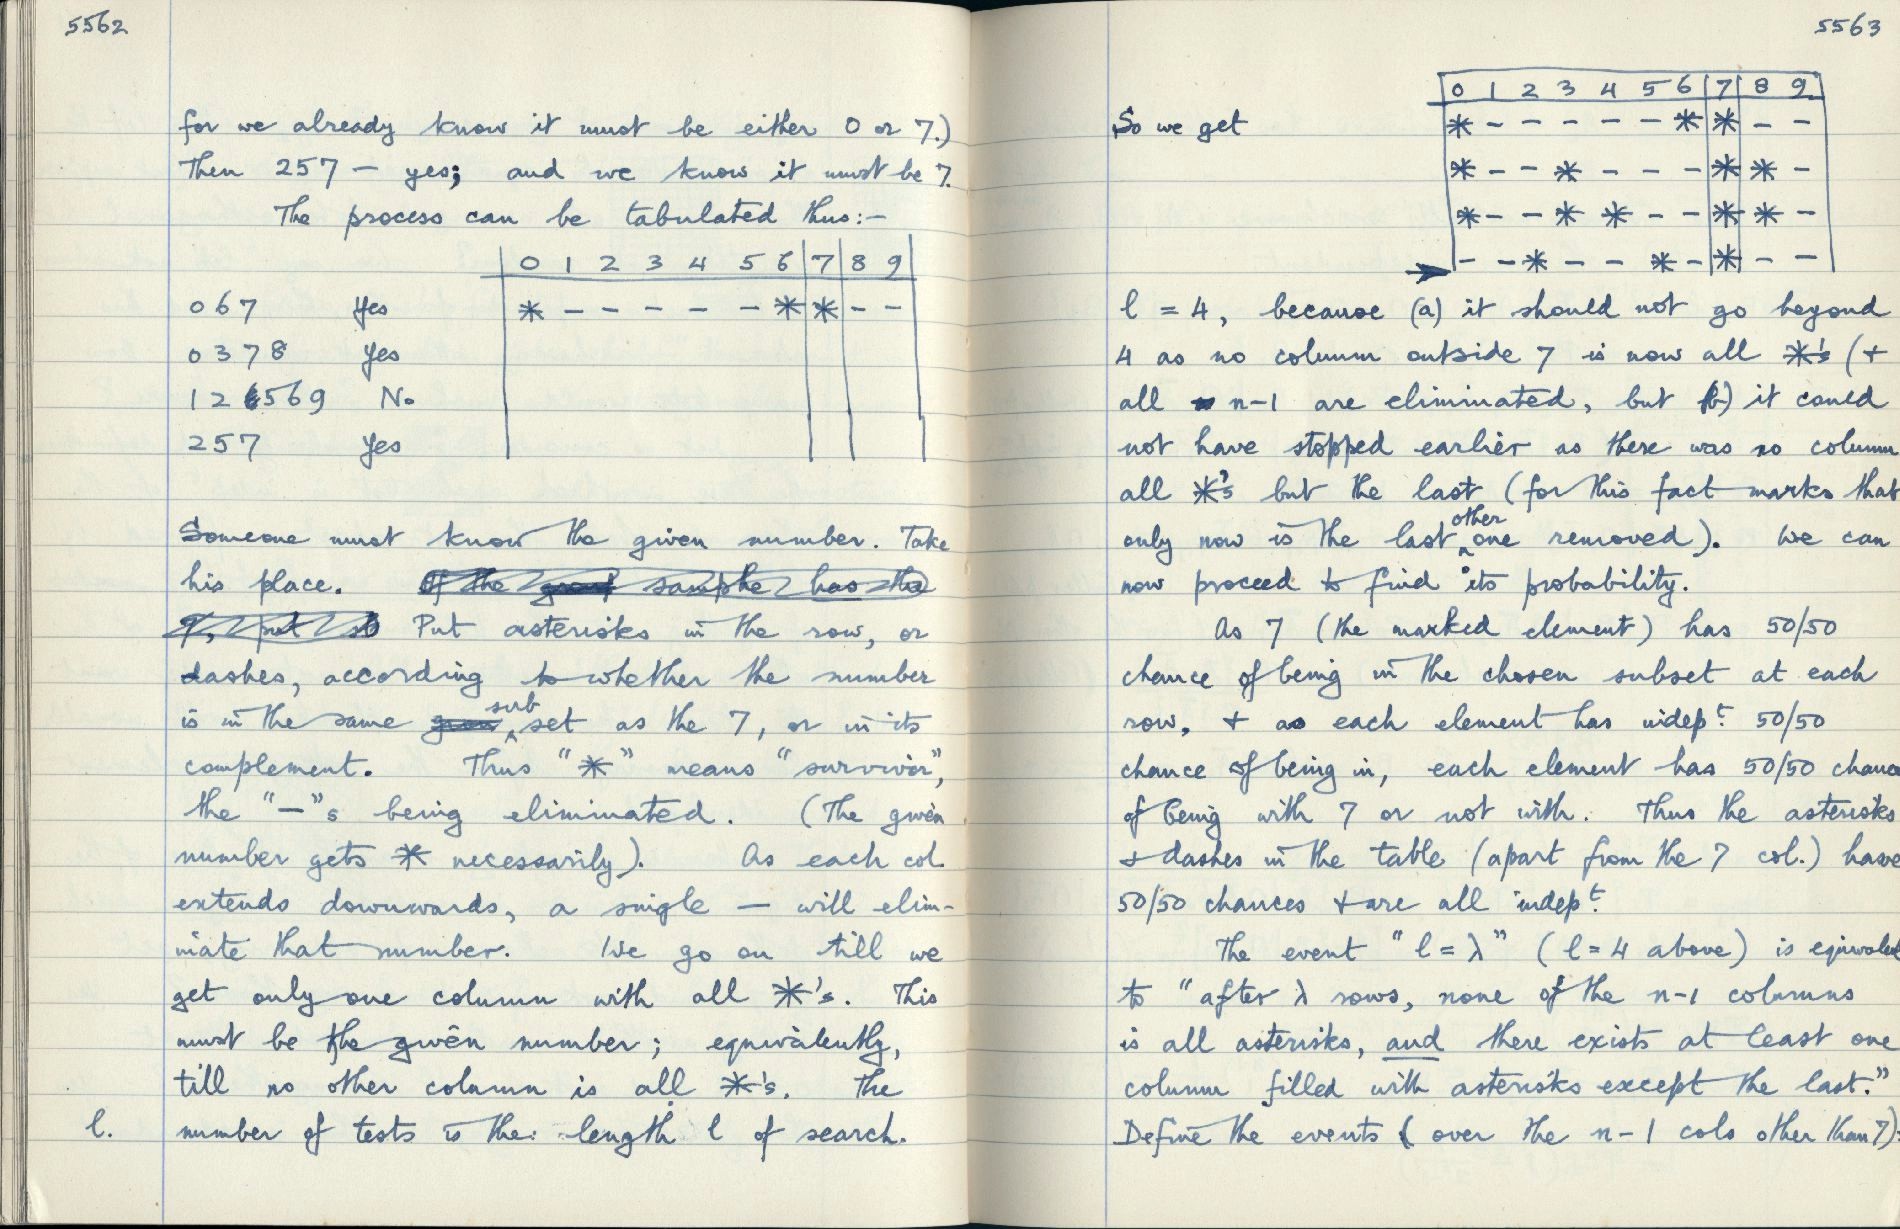 5562
for we already know it must be either 0 or 7.)
Then 257 — yes; and we know it must be 7.
The process can be tabulated thus:-
0 1 2 3 4 5 6 7 8 9
067 Yes * - - - - - * * - -
0378 Yes
12 569 No
257 Yes
Someone must know the given number. Take
his place. If the group sample has the
7, put so Put asterisks in the row, or
dashes, according to whether the number
sub
is in the same group set as the 7, or in its
complement. Thus "*" means "survivor",
the "—"s being eliminated. (The given
number gets * necessarily). As each col
extends downwards, a single — will elim-
inate that number. We go on till we
get only one column with all *'s. This
must be the given number; equivalently,
till no other column is all *'s. The
l. number of tests is the length l of search.
5563
0 1 2 3 4 5 6 7 8 9
So we get * - - - - - * * - -
* - - * - - - * * -
* - - * * - - * * -
→ - - * - - * - * - -
l = 4, because (a) it should not go beyond
4 as no column outside 7 is now all *'s (+
all n-1 are eliminated, but (b) it could
not have stopped earlier as there was no column
all *'s but the last (for this fact marks that
other
only now is the last one removed). We can
now proceed to find its probability.
As 7 (the marked element) has 50/50
chance of being in the chosen subset at each
row, + as each element has indept. 50/50
chance of being in, each element has 50/50 chance
of being with 7 or not with. Thus the asterisks
+ dashes in the table (apart from the 7 col.) have
50/50 chances + are all indept.
The event "l = λ" (l = 4 above) is equivalent
to "after λ rows, none of the n-1 columns
is all asterisks, and there exists at least one
column filled with asterisks except the last."
Define the events (over the n-1 cols other than 7):